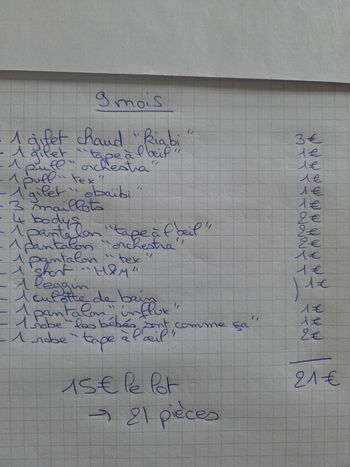 9 mois
- 1 gilet chaud "Kiabi" 3€
- 1 gilet "tape à l'œil" 1€
- 1 pull "orchestra" 1€
- 1 pull "tex" 1€
- 1 gilet "obaibi" 1€
- 3 maillots 1€
- 4 bodys 2€
- 1 pantalon "tape à l'œil" 2€
- 1 pantalon "orchestra" 2€
- 1 pantalon "tex" 1€
- 1 short "H&M" 1€
- 1 leggin
- 1 culotte de bain ) 1€
- 1 pantalon "influx" 1€
- 1 robe "les bébés sont comme ça" 1€
- 1 robe "tape à l'œil" 2€
21€
15€ le lot
→ 21 pièces